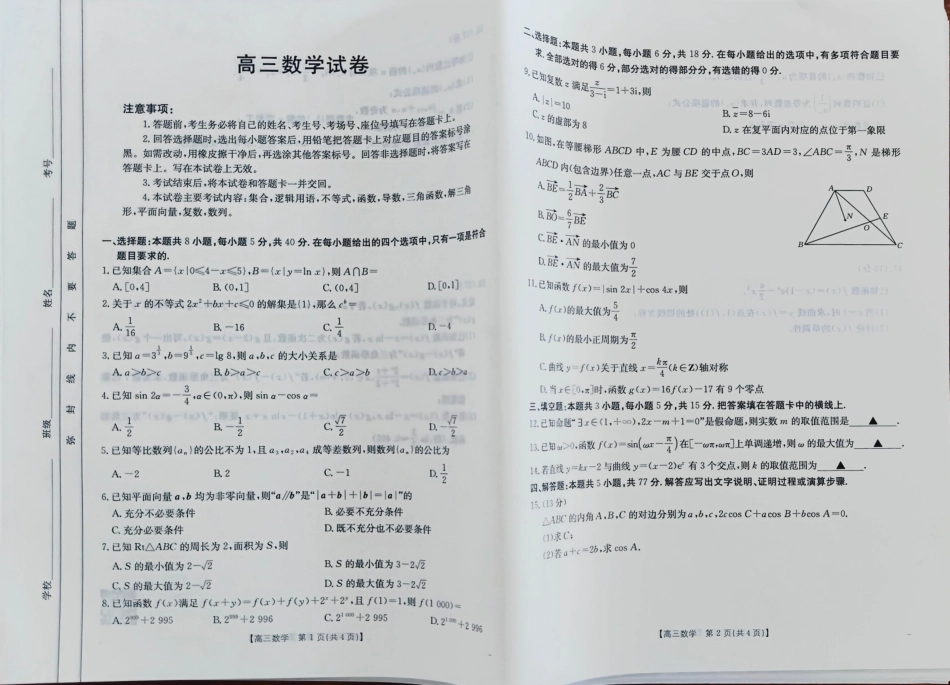 高三数学试卷
注意事项：
1.答题前,考生务必将自己的姓名、考生号、考场号、座位号填写在答题卡上。
2.回答选择题时,选出每小题答案后,用铅笔把答题卡上对应题目的答案标号涂
黑。如需改动,用橡皮擦干净后,再选涂其他答案标号。回答非选择题时,将答案写在
答题卡上。写在本试卷上无效。
3.考试结束后,将本试卷和答题卡一并交回。
4.本试卷主要考试内容:集合,逻辑用语,不等式,函数,导数,三角函数,解三角
形,平面向量,复数,数列。
一、选择题:本题共8小题,每小题5分,共40分.在每小题给出的四个选项中,只有一项是符合
题目要求的.
1.已知集合A={x|0≤4-x≤5},B={x|y=ln x},则A∩B=
A.[0,4] B.(0,1] C.(0,4] D.[0,1]
2.关于x的不等式2x²+bx+c≤0的解集是{1},那么cᵇ=
A.1/16 B.-16 C.1/4 D.-4
B.b>a>c C.c>a>b D.c>b>a
A.a>b>c
4.已知sin 2a=-3/4,a∈(0,π),则sin a-cos a=
A.1/2 B.-1/2 C.√7/2 D.-√7/2
5.已知等比数列{aₙ}的公比不为1,且a₃,a₂,a₄成等差数列,则数列{aₙ}的公比为
A.-2 B.2 C.-1 D.1/2
6.已知平面向量a,b均为非零向量,则“a∥b”是“|a+b|+|b|=|a|”的
A.充分不必要条件 B.必要不充分条件
C.充分必要条件 D.既不充分也不必要条件
7.已知Rt△ABC的周长为2,面积为S,则
A.S的最小值为2-√2 B.S的最小值为3-2√2
C.S的最大值为2-√2 D.S的最大值为3-2√2
8.已知函数f(x)满足f(x+y)=f(x)+f(y)+2ˣ+2ʸ,且f(1)=1,则f(1 000)=
+2 995 +2 996 +2 995 +2 996
【高三数学 第1页(共4页)】
考号
姓名
班级
学校
题
答
要
不
内
线
封
弥
二、选择题:本题共3小题,每小题6分,共18分.在每小题给出的选项中,有多项符合题目要
求.全部选对的得6分,部分选对的得部分分,有选错的得0分.
9.已知复数z满足z̄/(3-i)=1+3i,则
A.|z|=10 B.z̄=8-6i
C.z的虚部为8 D.z在复平面内对应的点位于第一象限
10.如图,在等腰梯形ABCD中,E为腰CD的中点,BC=3AD=3,∠ABC=π/3,N是梯形
ABCD内(包含边界)任意一点,AC与BE交于点O,则
A.BE=1/2BA+2/3BC
B.BO=6/7BE
C.BE·AN的最小值为0
D.BE·AN的最大值为7/2
A
D
N
E
O
B
C
11.已知函数f(x)=|sin 2x|+cos 4x,则
A.f(x)的最大值为5/4
B.f(x)的最小正周期为π/2
C.曲线y=f(x)关于直线x=kπ/4(k∈Z)轴对称
D.当x∈[0,π]时,函数g(x)=16f(x)-17有9个零点
三、填空题:本题共3小题,每小题5分,共15分.把答案填在答题卡中的横线上.
12.已知命题“∃x∈(1,+∞),2x-m+1=0”是假命题,则实数m的取值范围是▲.
13.已知ω>0,函数f(x)=sin(ωx-π/4)在[-ωπ,ωπ]上单调递增,则ω的最大值为▲.
14.若直线y=kx-2与曲线y=(x-2)eˣ有3个交点,则k的取值范围为▲.
四、解答题:本题共5小题,共77分.解答应写出文字说明、证明过程或演算步骤.
15.(13分)
△ABC的内角A,B,C的对边分别为a,b,c,2ccos C+acos B+bcos A=0.
(1)求C;
(2)若a+c=2b,求cos A.
【高三数学 第2页(共4页)】